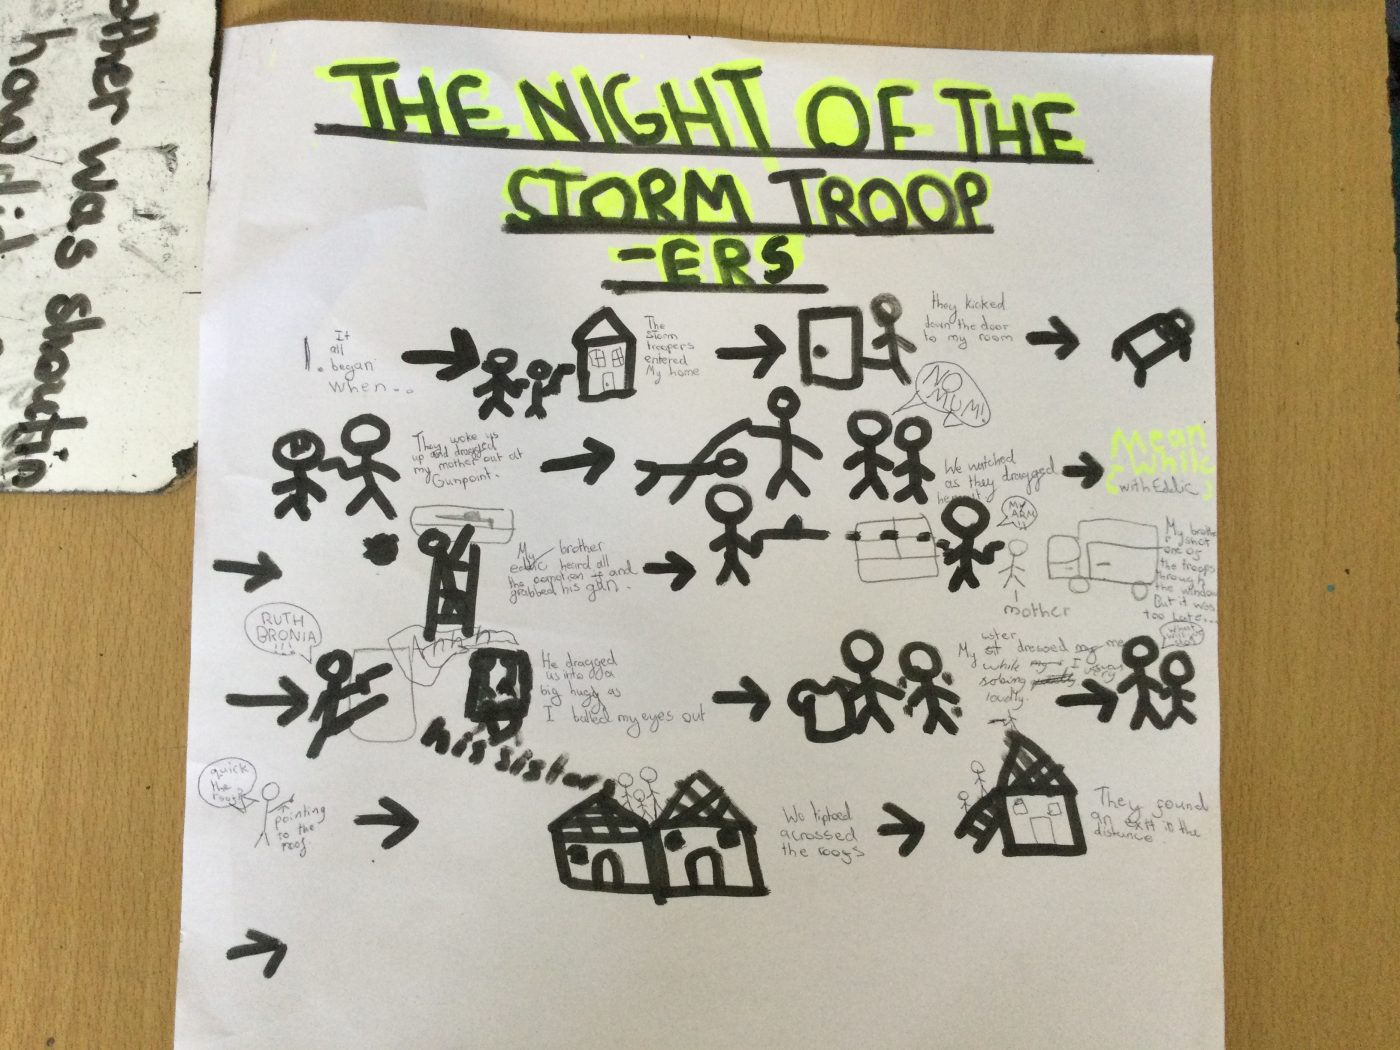 THE NIGHT OF THE
STORM TROOP
-ERS
1. It
all
began
when...
The
Storm
troopers
entered
My home
they kicked
down the door
to my room
NO
MUM!
They woke us
up and dragged
my mother out at
Gunpoint.
We watched
as they dragged
her out
Mean
While
(with Eddie)
My brother
eddie heard all
the comotion and
grabbed his gun.
MY
ARM
!!
mother
My brother
shot
one of
the troops
through
the window
But it was
too late...
RUTH
BRONIA
!!!
Ahhh
He dragged
us into a
big hug as
I balled my eyes out
his sisters
My sister dressed me
while I was
sobing very
loudly.
What
will we
do?
quick
the
roof!
pointing
to the
roof
We tiptoed
acrossed
the roofs
They found
an exit in the
distance.
other was shoutin
how did